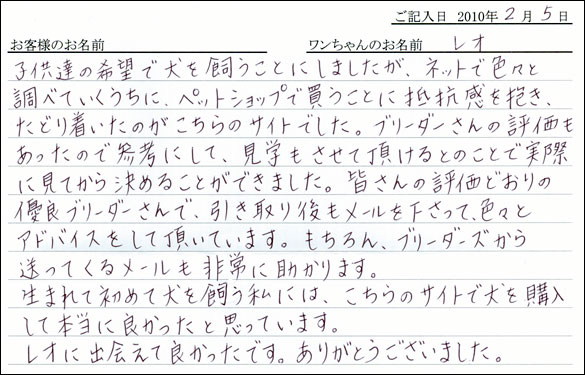 ご記入日 2010年 2月 5日
お客様のお名前 ワンちゃんのお名前 レオ
子供達の希望で犬を飼うことにしましたが、ネットで色々と
調べていくうちに、ペットショップで買うことに抵抗感を抱き、
たどり着いたのがこちらのサイトでした。ブリーダーさんの評価も
あったので参考にして、見学もさせて頂けるとのことで実際
に見てから決めることができました。皆さんの評価どおりの
優良ブリーダーさんで、引き取り後もメールを下さって、色々と
アドバイスをして頂いています。もちろん、ブリーダーズから
送ってくるメールも非常に助かります。
生まれて初めて犬を飼う私には、こちらのサイトで犬を購入
して本当に良かったと思っています。
レオに出会えて良かったです。ありがとうございました。